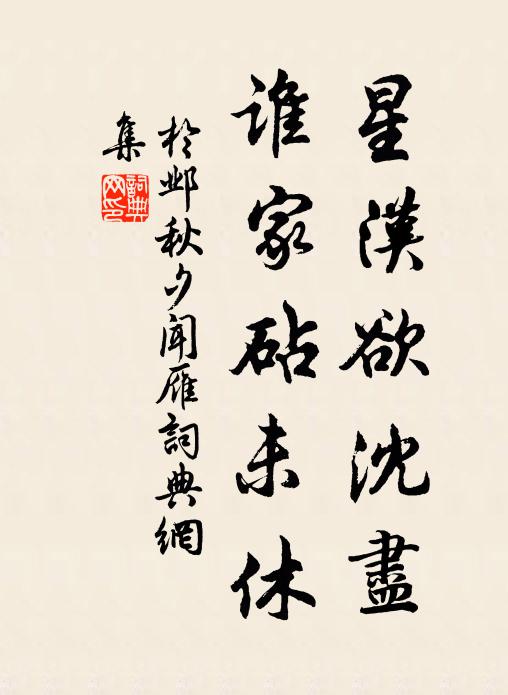 星漢欲沈盡
誰家砧未休
於鄴秋夕聞雁詞典網
集
詞典
网印